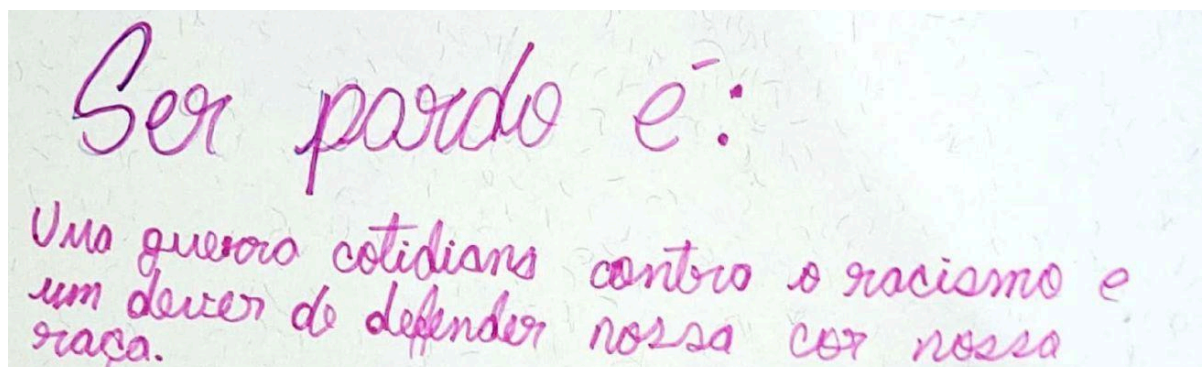 Ser pardo é:
Uma guerra cotidiana contra o racismo e
um dever de defender nossa cor nossa
raça.